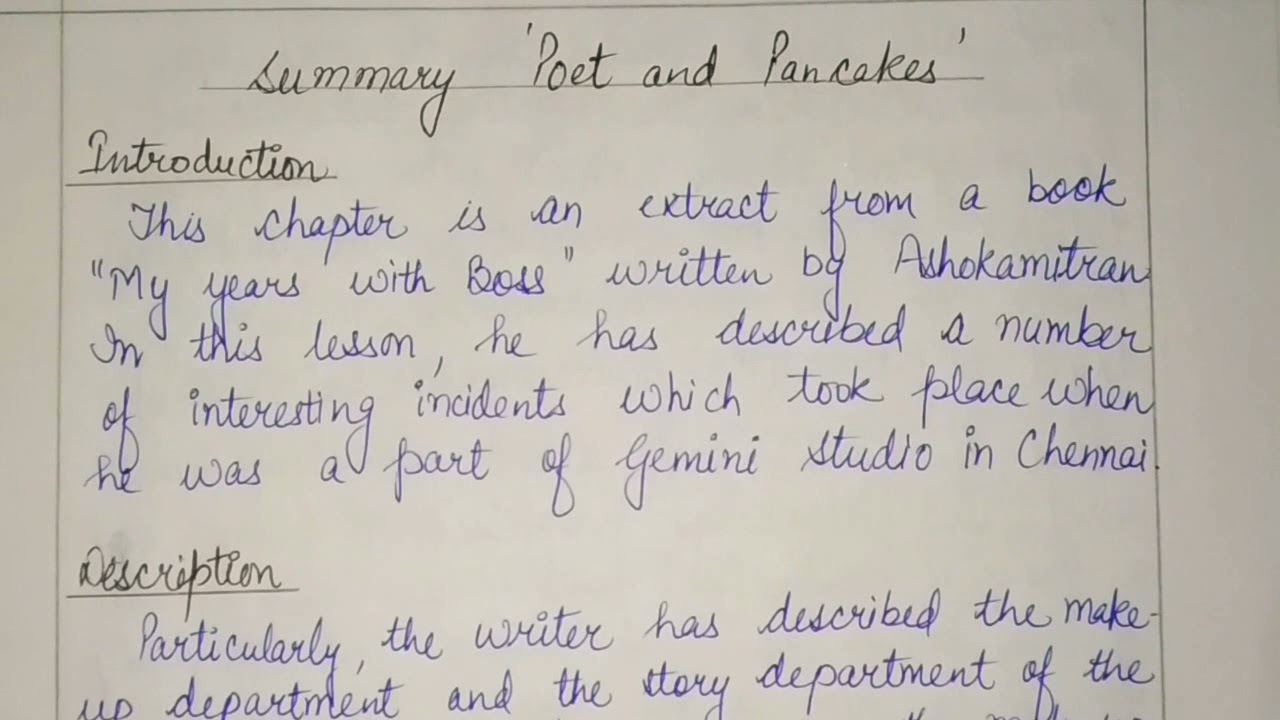 Summary 'Poet and Pancakes'
Introduction
This chapter is an extract from a book
"My years with Boss" written by Ashokamitran
In this lesson, he has described a number
of interesting incidents which took place when
he was a part of Gemini Studio in Chennai.
Description
Particularly, the writer has described the make-
up department and the story department of the